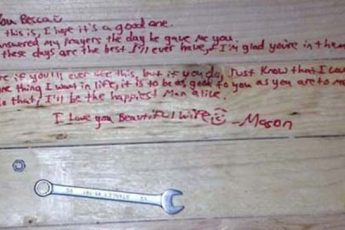 You Becca
this is, I hope it's a good one.
answered my prayers the day he gave me you.
these days are the best I'll ever have, I'm glad you're in them
if you'll ever see this, but if you do, Just know that I love
thing I want in life, it is to be as good to you as you are to me
do that, I'll be the happiest Man alive.
I love you Beautiful wife
-Mason